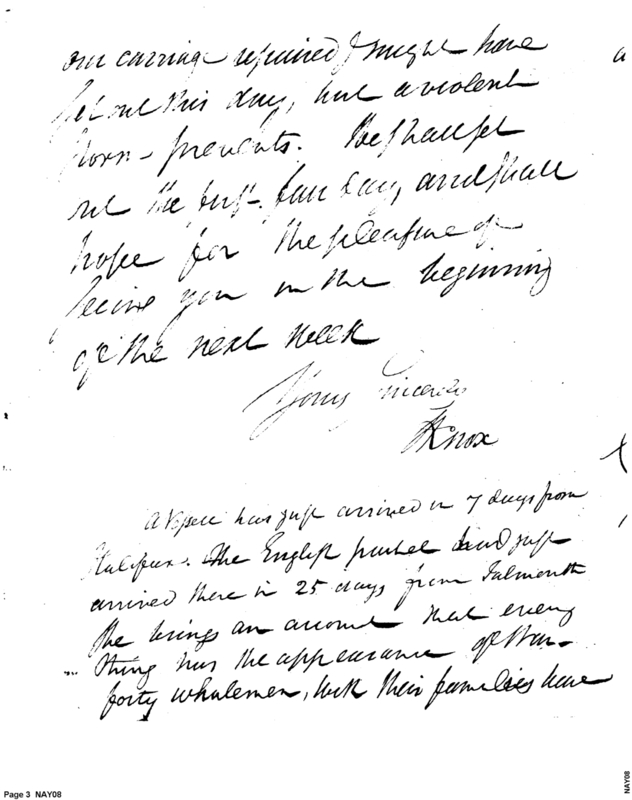 our carriage repaired I might have
set out this day, but a violent
storm prevents. We shall set
out the first fair day, and shall
hope for the pleasure of
seeing you in the beginning
of the next week
Yours Sincerely
HKnox
A Vessel has just arrived in 7 days from
Halifax. The English packet had just
arrived there in 25 days from Falmouth
She brings an account that every
thing has the appearance of War—
forty whalemen, with their families have
Page 3 NAY08
NAY08